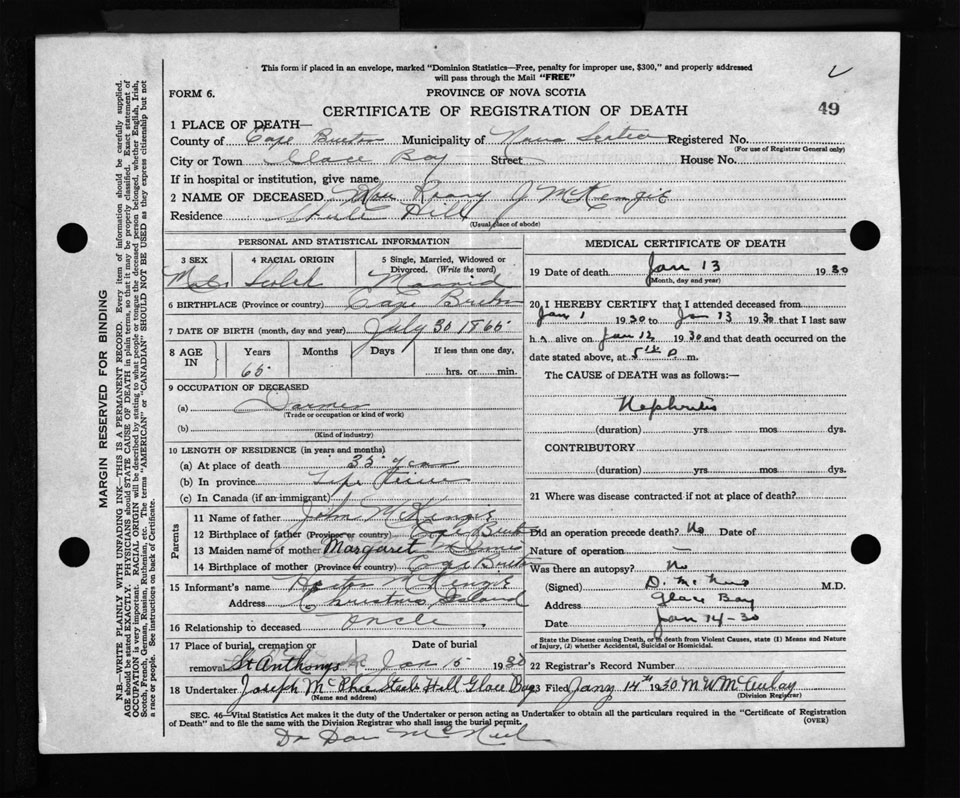 This form if placed in an envelope, marked "Dominion Statistics—Free, penalty for improper use, $300," and properly addressed
will pass through the Mail "FREE"
FORM 6.
PROVINCE OF NOVA SCOTIA
49
CERTIFICATE OF REGISTRATION OF DEATH
1 PLACE OF DEATH—
County of Cape Breton Municipality of Nova Scotia Registered No.
(For use of Registrar General only)
City or Town Glace Bay Street House No.
If in hospital or institution, give name
2 NAME OF DECEASED J McKenzie
Residence Hill
(Usual place of abode)
PERSONAL AND STATISTICAL INFORMATION
3 SEX 4 RACIAL ORIGIN 5 Single, Married, Widowed or Divorced. (Write the word)
Male Scotch Married
6 BIRTHPLACE (Province or country) Cape Breton
7 DATE OF BIRTH (month, day and year) July 30 1865
8 AGE IN Years Months Days If less than one day,
65 hrs. or min.
9 OCCUPATION OF DECEASED
(a) Farmer
(Trade or occupation or kind of work)
(b)
(Kind of industry)
10 LENGTH OF RESIDENCE (in years and months)
(a) At place of death 35 years
(b) In province Life
(c) In Canada (if an immigrant)
Parents
11 Name of father John McKenzie
12 Birthplace of father (Province or country) Cape Breton
13 Maiden name of mother Margaret
14 Birthplace of mother (Province or country) Cape Breton
15 Informant's name McKenzie
Address Christmas Island
16 Relationship to deceased Uncle
17 Place of burial, cremation or removal Date of burial
St Anthonys Jan 15 1930
18 Undertaker Joseph McPhee Steele Hill Glace Bay
(Name and address)
MEDICAL CERTIFICATE OF DEATH
19 Date of death Jan 13 1930
(Month, day and year)
20 I HEREBY CERTIFY that I attended deceased from
Jan 1 1930 to Jan 13 1930 that I last saw
h alive on Jan 12 1930 and that death occurred on the
date stated above, at 5 m.
The CAUSE of DEATH was as follows:—
Nephritis
(duration) yrs. mos dys.
CONTRIBUTORY
(duration) yrs. mos dys.
21 Where was disease contracted if not at place of death?
Did an operation precede death? No Date of
Nature of operation —
Was there an autopsy? No
(Signed) D. McNeil M.D.
Address Glace Bay
Date Jan 14-30
State the Disease causing Death, or in death from Violent Causes, state (1) Means and Nature
of Injury, (2) whether Accidental, Suicidal or Homicidal.
22 Registrar's Record Number
23 Filed Jany 14th 1930 M W McAulay
(Division Registrar)
SEC. 46—Vital Statistics Act makes it the duty of the Undertaker or person acting as Undertaker to obtain all the particulars required in the "Certificate of Registration
of Death" and to file the same with the Division Registrar who shall issue the burial permit.
(OVER)
Dr Dan McNeil
MARGIN RESERVED FOR BINDING
N.B.—WRITE PLAINLY WITH UNFADING INK—THIS IS A PERMANENT RECORD. Every item of information should be carefully supplied.
AGE should be stated EXACTLY. PHYSICIANS should STATE CAUSE OF DEATH in plain terms, so that it may be properly classified. Exact statement of
OCCUPATION is very important. RACIAL ORIGIN will be described by stating to what people or tongue the deceased person belonged, whether English, Irish,
Scotch, French, German, Russian, Ruthenian, etc. The terms "AMERICAN" or "CANADIAN" SHOULD NOT BE USED as they express citizenship but not
a race or people. See instructions on back of Certificate.